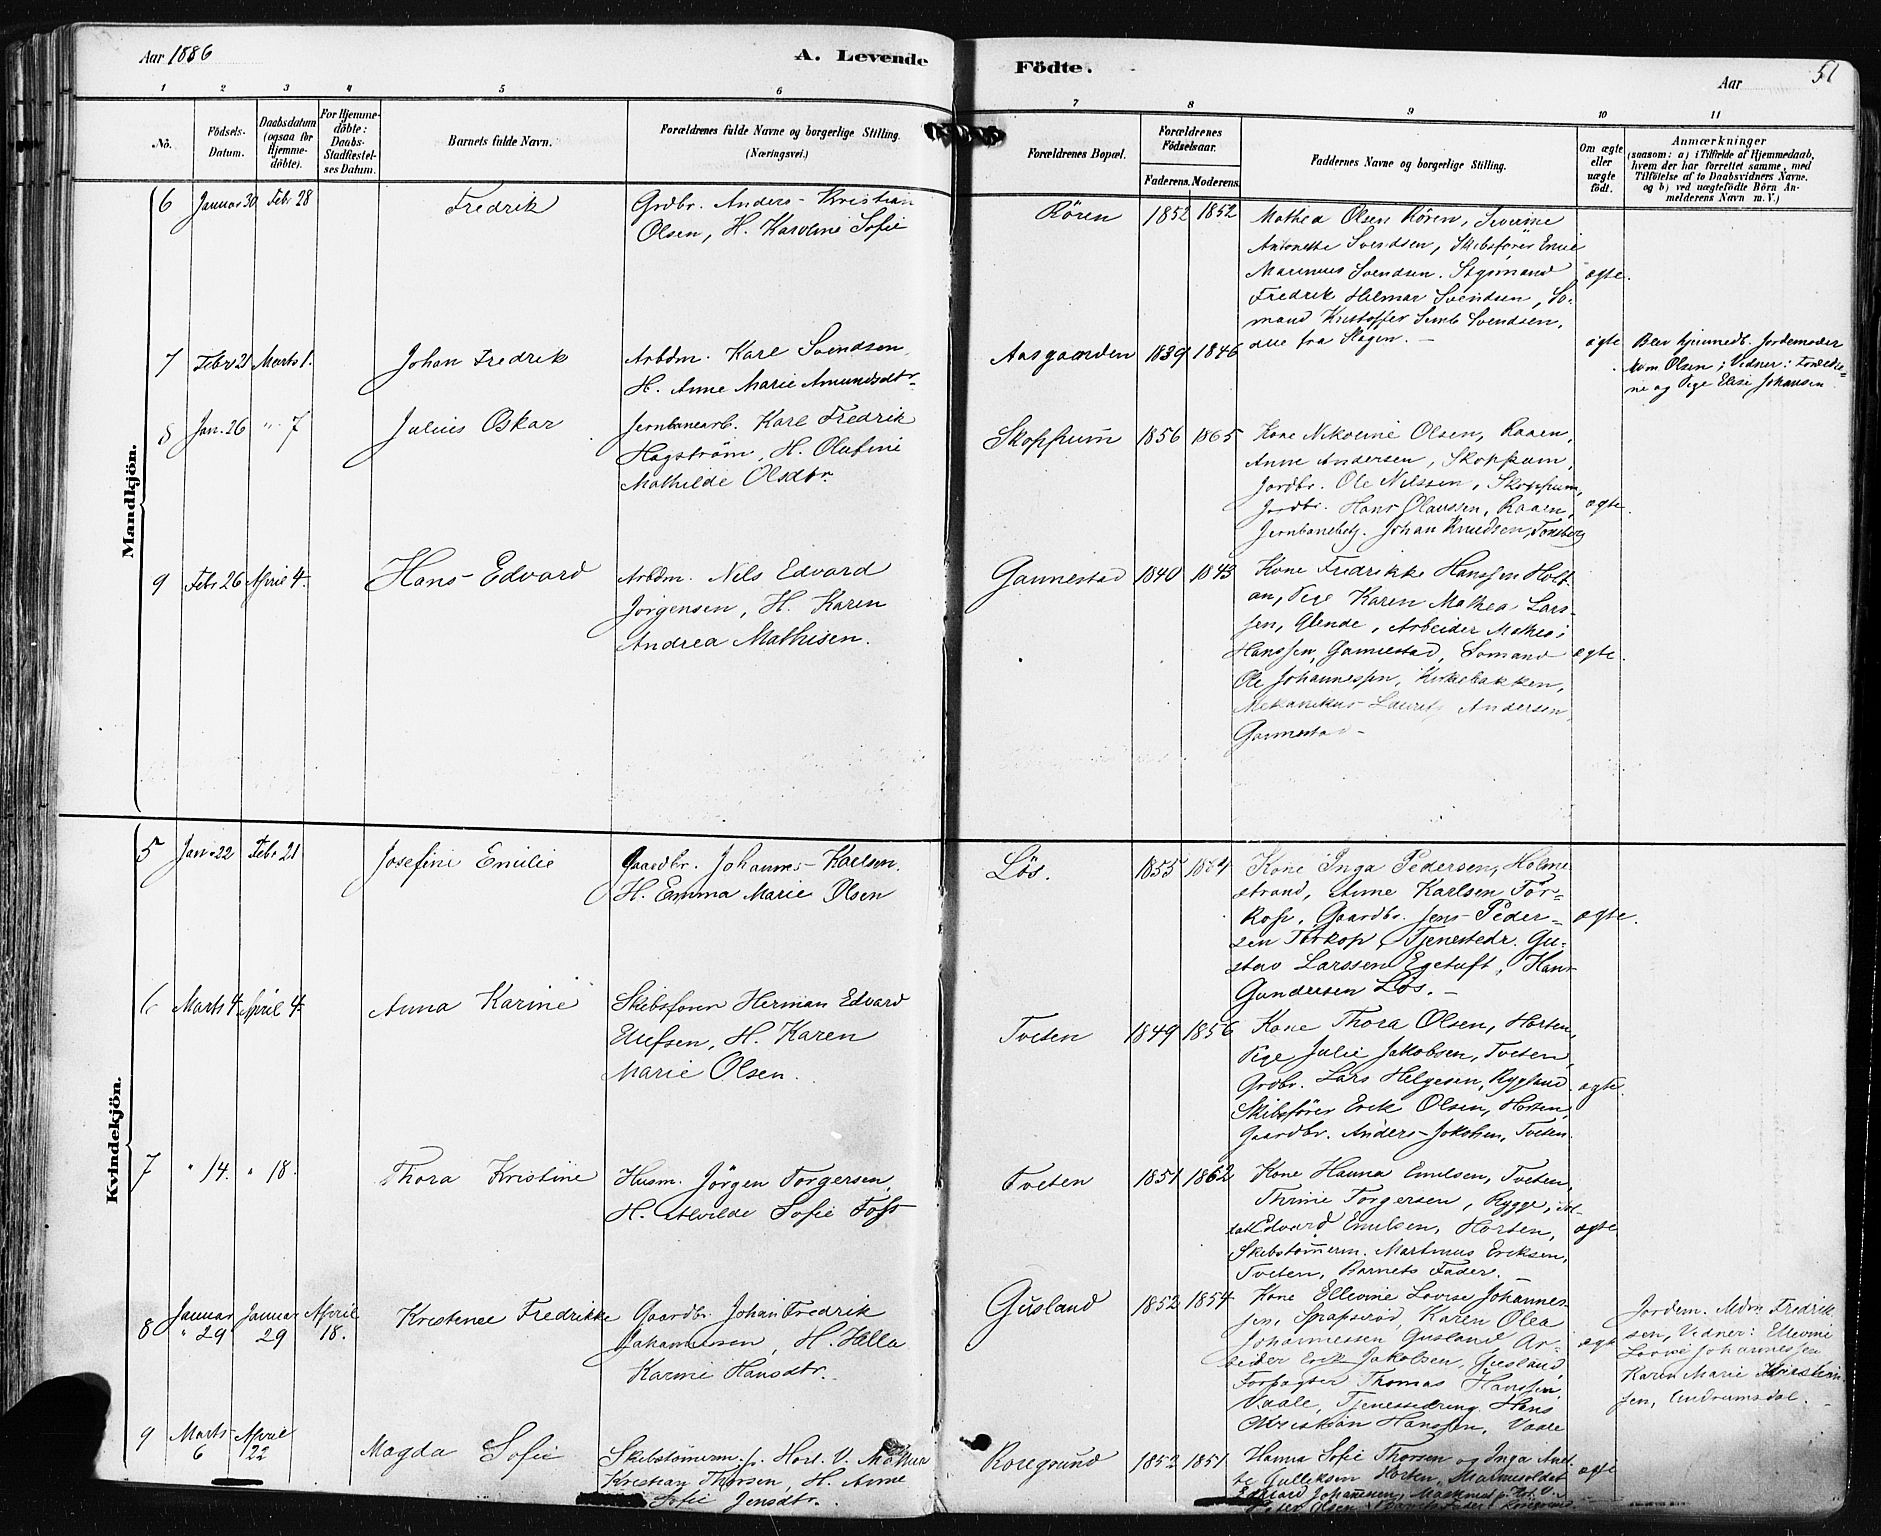 Aar 1886
A. Levende
Födte.
Aar
51
1 2 3 4 5 6 7 8 9 10 11
No.
Födsels-
Datum.
Daabsdatum
(ogsaa for
Hjemme-
döbte).
For Hjemme-
döbte:
Daabs-
Stadfæstel-
ses Datum.
Barnets fulde Navn.
Forældrenes fulde Navne og borgerlige Stilling.
(Næringsvei.)
Forældrenes Bopæl.
Forældrenes
Födselsaar.
Faderens. Moderens.
Faddernes Navne og borgerlige Stilling.
Om ægte
eller
uægte
födt.
Anmærkninger
(saasom: a) i Tilfælde af Hjemmedaab,
hvem der har forrettet samme, med
Tilföielse af to Daabsvidners Navne,
og b) ved uægtefödte Börn An-
melderens Navn m. V.)
Mandkjön.
6 Januar 30 Febr 28 Fredrik
Grdbr. Anders Kristian
Olsen, H. Karoline Sofie
Rören 1852 1852
Mathea Olsen Rören, Severine
Antonette Svendsen, Skibsfører Emil
Marinus Svendsen. Styrmand
Fredrik Hilmar Svendsen, Sö-
mand Kristoffer Svendsen,
alle fra Slagen. —
ægte.
7 Febr 21 Marts 1. Johan Fredrik
Arbdm. Karl Svendsen,
H. Anne Marie Amundsdtr.
Aasgaarden 1839 1846
ægte
Blev hjemmedb. Jordemoder
Olsen; Vidner: Forældre-
ne og Pige Elise Johansen.
8 Jan. 26 " 7 Julius Oskar
Jernbanearb. Karl Fredrik
Hagström, H. Olufine
Mathilde Olsdtr.
Skoppum 1856 1865
Kone Nikoline Olsen, Raaen,
Anne Andersen, Skoppum,
Jordbr. Ole Nilssen, Skoppum,
Jordbr. Hans Olaussen, Raaen,
Jernbanebetj. Johan Knudsen, Tonsberg
ægte.
9 Febr 26 April 4. Hans Edvard
Arbdm. Nils Edvard
Jörgensen, H. Karen
Andrea Mathisen.
Gannestad 1840 1843
Kone Fredrikke Hanssen Holt-
an, Pige Karen Mathea Lars-
sen, Glende, Arbeider Mathias
Hanssen, Gannestad, Sömand
Ole Johannessen, Kirkebakken,
Mekanikus Laurits Andersen,
Gannestad —
ægte.
Kvindekjön.
5 Jan. 22 Febr 21 Josefine Emilie
Gaardbr. Johannes Karlsen.
H. Emma Marie Olsen
Lös. 1855 1864
Kone Inga Pedersen, Holme-
strand, Anne Karlsen Tor-
kop, Gaardbr. Jens Peder-
sen Torkop, Tjenestedr. Gu-
stav Larssen Egetuft, Hans
Gundersen Lös. —
ægte.
6 Marts 4. April 4. Anna Karine
Skibsfører Herman Edvard
Ellefsen, H. Karen
Marie Olsen.
Tveten 1849 1856
Kone Thora Olsen, Horten,
Pige Julie Jakobsen, Tveten,
Grdbr. Lars Helgesen, Rygland
Skibsförer Erik Olsen, Horten,
Gaardbr. Anders Jakobsen, Tveten.
ægte.
7 " 14. " 18. Thora Kristine
Husm. Jörgen Torgersen,
H. Alvilde Sofie Foss
Tveten 1851 1862
Kone Hanna Emilsen, Tveten,
Thrine Torgersen, Rygge,
Edvard Emilsen, Horten,
Skibstömmerm. Martinus Eriksen,
Tveten, Barnets Fader.
ægte
8 Januar 29 Januar 29 April 18. Kristense Fredrikke
Gaardbr. Johan Fredrik
Johannessen, H. Hella
Karine Hansdtr.
Gusland 1852 1854
Kone Ellevine Lovise Johannes-
sen, Snapseröd, Karen Olea
Johannessen Gusland, Ar-
beider Erik Jakobsen, Gusland,
Forpagter Thomas Hanssen,
Vaale, Tjenestedreng Hans
Christian Hanssen, Vaale
ægte
Jordem. Fredrik-
sen, Vidner: Ellevine
Lovise Johannessen
Karen Marie Kristian-
sen, Undrumsdal. —
9 Marts 6 April 22 Magda Sofie
Skibstömmerm. p. Hort. V.
Kristian Thorsen, H. Anne
Sofie Jensdtr.
Roregrund 1852 1851
Hanna Sofie Thorsen og Inga
Gulliksen Horten,
Edvard Johannesen,
Peter Olsen
ægte